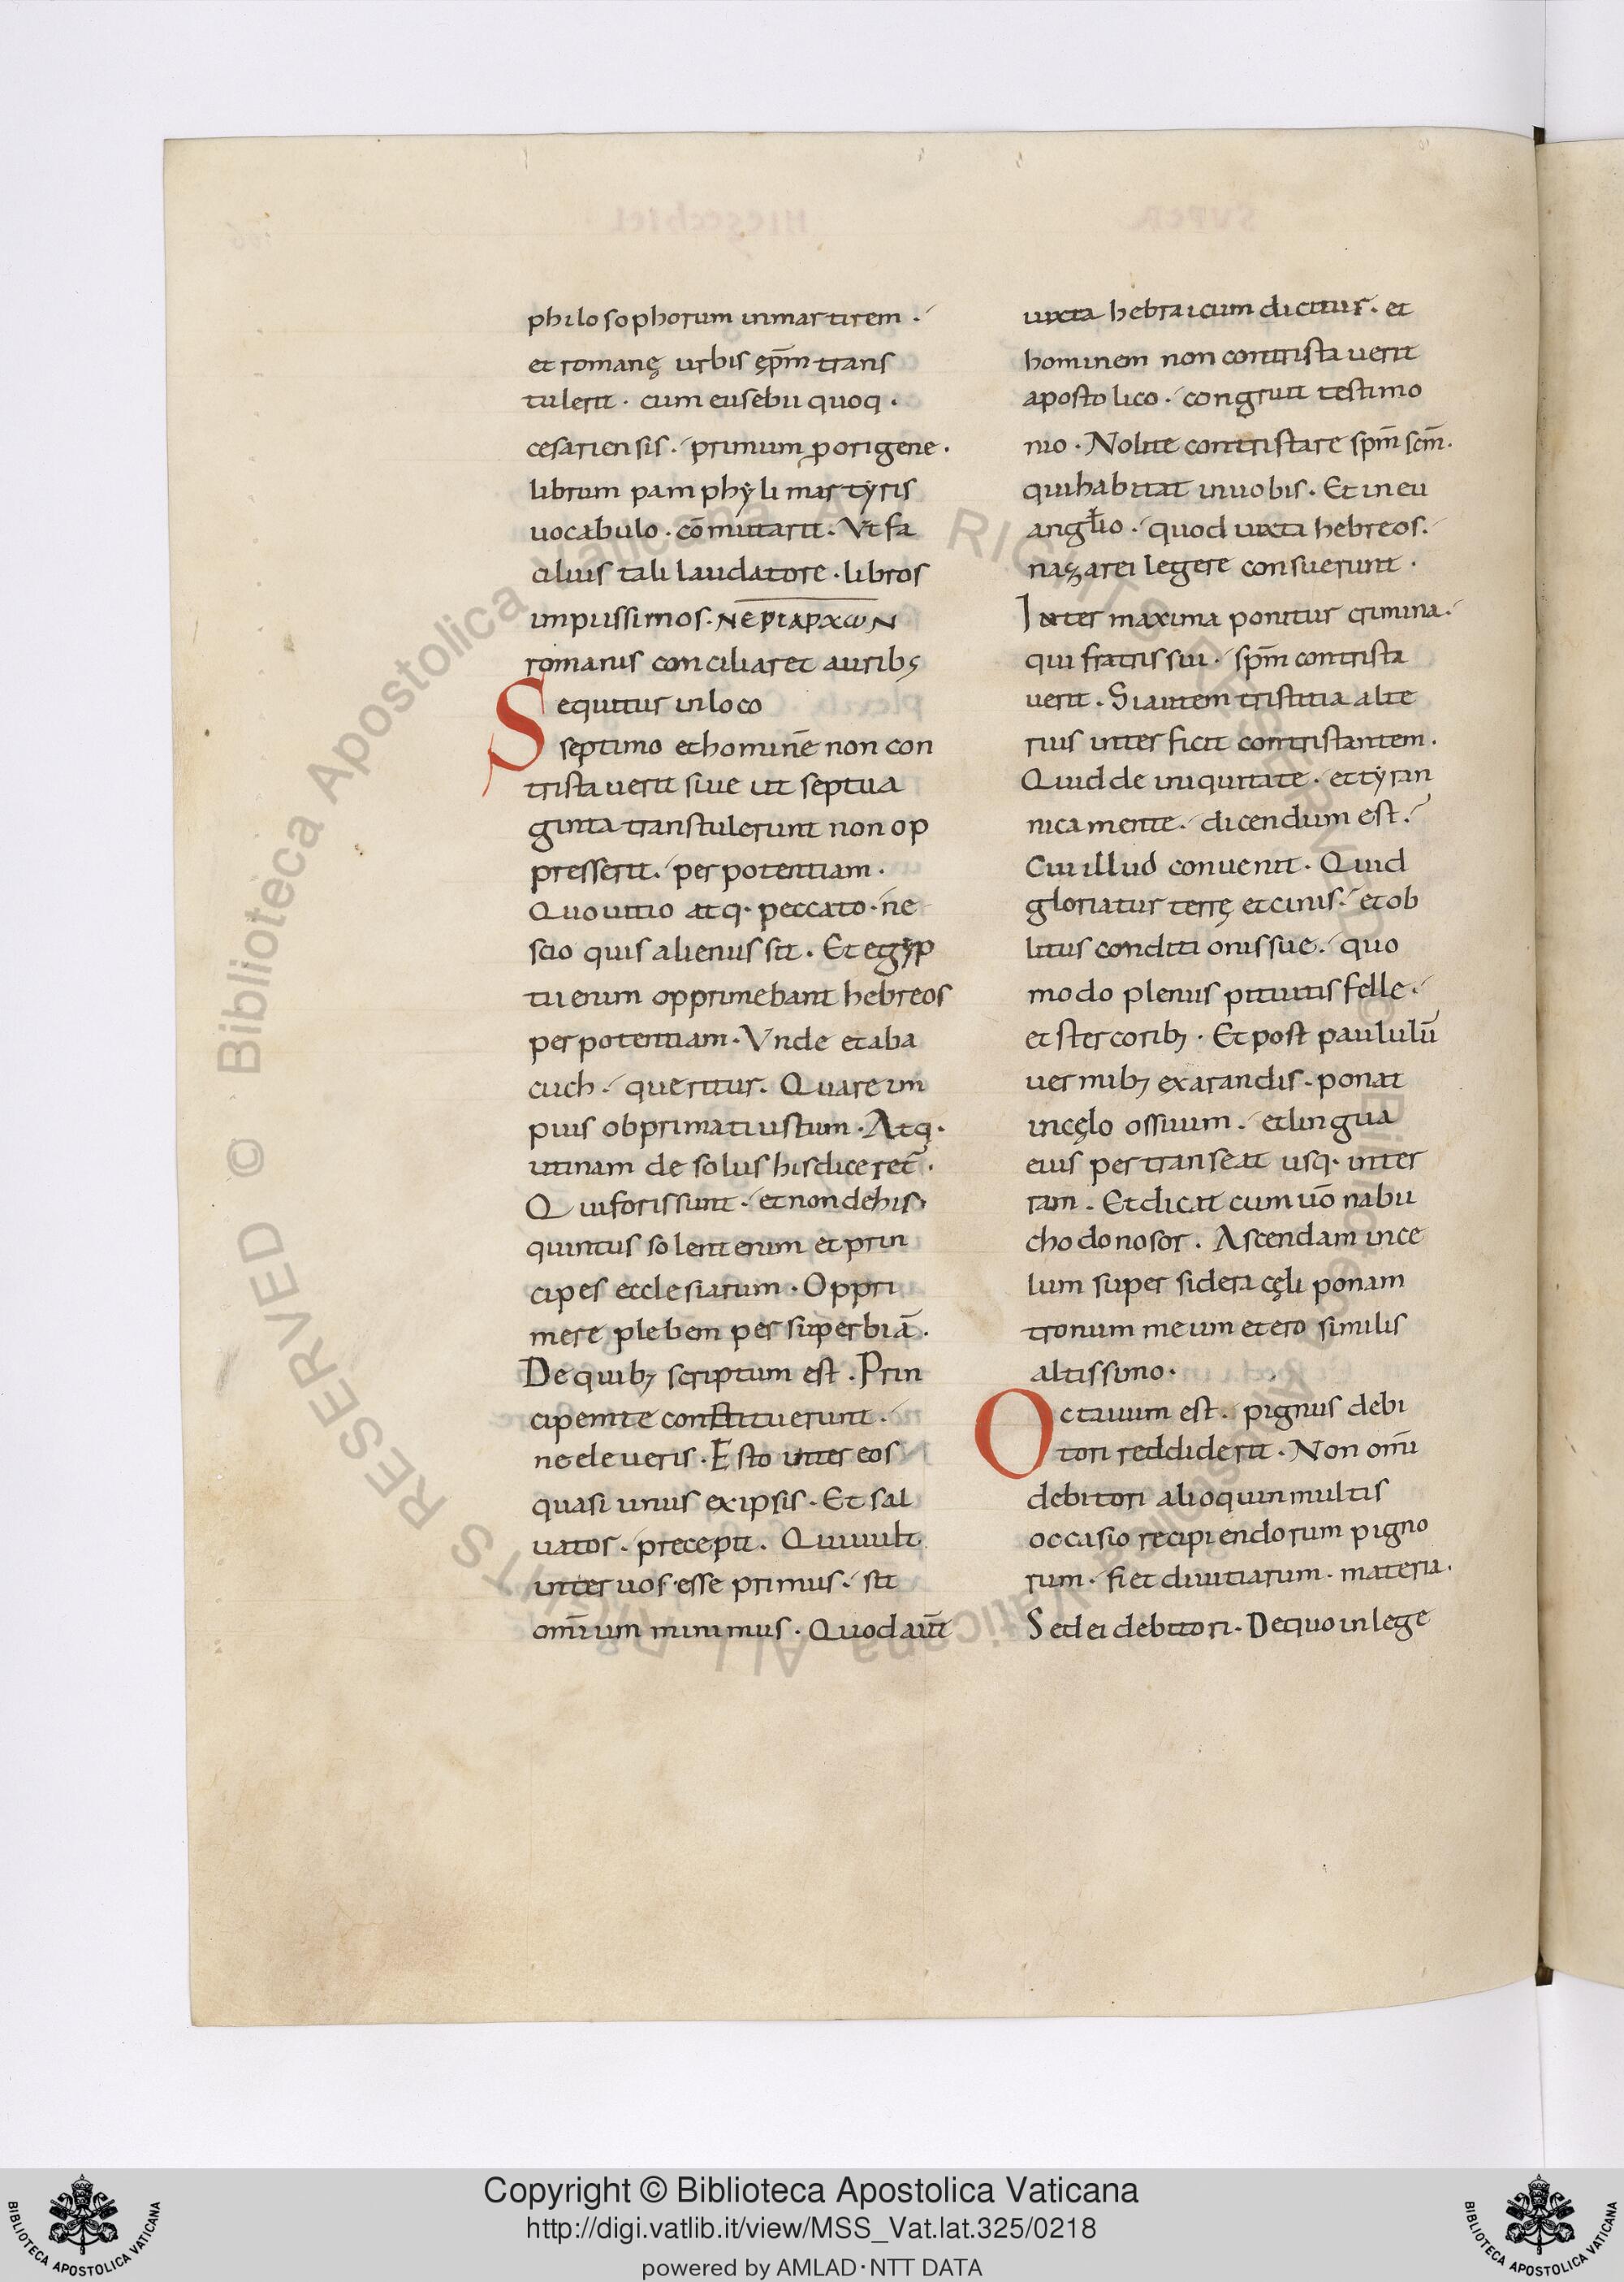 philosophorum inmartirem ·
et romanę urbis ęp̄m trans
tulerit · cum eusebii quoq ·
cesariensis · primum ꝓ origene ·
librum pamphẏli martẏris
uocabulo · cōmutarit · Vt fa
cilius tali laudatore · libros
impiissimos · ΝΕΡΙΑΡΧωΝ
romanis conciliaret auribꝫ
Sequitur inloco
septimo et hominē non con
tristauerit siue ut septua
ginta transtulerunt non op
presserit · per potentiam ·
Quo uitio atq· peccato · ne
scio quis alienus sit · Et egẏp
tii enim opprimebant hebreos
per potentiam · Vnde et aba
cuch · queritur · Quare im
pius obprimat iustum · Atq·
utinam de solus his diceret̄ ·
Qui foris sunt · et non dehis
quintus solent enim et prin
cipes ecclesiarum · Oppri
mere plebem per superbiā ·
De quibꝫ scriptum est · Prin
cipem te constituerunt ·
ne eleueris · Esto inter eos
quasi unus ex ipsis · Et sal
uator · precepit · Qui uult
inter uos esse primus · sit
om̄ium minimus · Quod aut̄
iuxta hebraicum dicitur · et
hominem non contristauerit
apostolico · congruit testimo
nio · Nolite contristare sp̄m sc̄m ·
qui habitat in uobis · Et in eu
angł̄io · quod iuxta hebreos ·
nazarei legere consuerunt ·
Inter maxima ponitur crimina ·
qui fratris sui · sp̄m contrista
uerit · Si autem tristitia alte
rius interficit contristantem ·
Quid de iniquitate · et tẏran
nica mente · dicendum est ·
Cui illud conuenit · Quid
gloriatur terrę et cinis · et ob
litus conditionis sue · quo
modo plenus pituitis felle ·
et stercoribꝫ · Et post paululū
uermibꝫ exarandis · ponat
in cęlo ossuum · et lingua
eius pertranseat usq· inter
ram · Et dicat cum uō nabu
chodonosor · Ascendam ince
lum super sidera cęli ponam
tronum meum et ero similis
altissimo ·
Octauum est · pignus debi
tori reddiderit · Non om̄i
debitori alioquin multis
occasio recipiendorum pigno
rum · fiet diuitiarum · materia ·
Sed ei debitori · De quo in lege
© Biblioteca Apostolica Vaticana ALL RIGHTS RESERVED
Copyright © Biblioteca Apostolica Vaticana
http://digi.vatlib.it/view/MSS_Vat.lat.325/0218
powered by AMLAD·NTT DATA
BIBLIOTECA APOSTOLICA VATICANA
BIBLIOTECA APOSTOLICA VATICANA